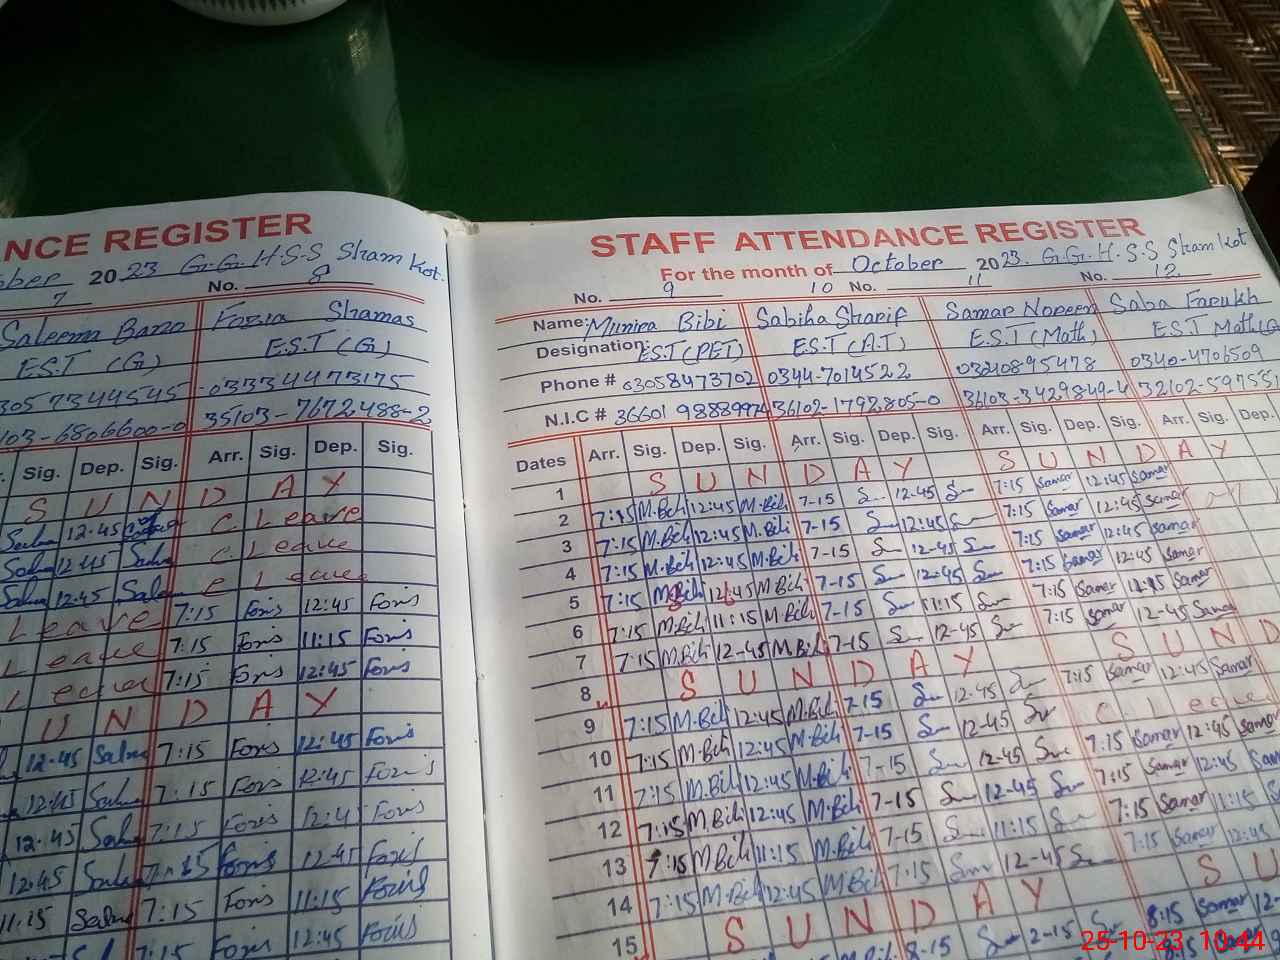 NCE REGISTER
ober 2023 G.G.H.S.S Sham Kot.
7 No. 8
Saleema Bano Fozia Shamas
E.S.T (G) E.S.T (G)
305 7344545 03334473175
103-6806600-0 35103-7672488-2
Sig. Dep. Sig. Arr. Sig. Dep. Sig.
S U N D A Y
12-45 C. Leave
12:45 C Leave
12:45 Leave
Leave 7:15 Foxis 12:45 Foxis
Leave 7:15 Foxis 11:15 Foxis
Leave 7:15 Foxis 12:45 Foxis
U N D A Y
12-45 7:15 Foxis 12:45 Foxis
12:45 7:15 Foxis 12:45 Foxis
12:45 7:15 Foxis 12:45 Foxis
12:45 Foxis 12:45 Foxis
11:15 7:15 Foxis 11:15 Foxis
7:15 Foxis 12:45 Foxis
STAFF ATTENDANCE REGISTER
For the month of October 2023. G.G.H.S.S Sham Kot
No. 9 10 No. 11 No. 12
Name: Munira Bibi Sabiha Sharif Samar Noreen Saba Farukh
Designation: E.S.T (PET) E.S.T (A.T) E.S.T (Math) E.S.T Math(G
Phone # 03058473702 0344-7014522 03210895478 0340-4706509
N.I.C # 36601 98889974 36102-1792805-0 36103-3429849-4 32102-597551
Dates Arr. Sig. Dep. Sig. Arr. Sig. Dep. Sig. Arr. Sig. Dep. Sig. Arr. Sig. Dep.
1 S U N D A Y S U N D A Y
2 7:15 M.Bibi 12:45 M.Bibi 7-15 12-45 7:15 Samar 12:45 Samar
3 7:15 M.Bibi 12:45 M.Bibi 7-15 12:45 7:15 Samar 12:45 Samar
4 7:15 M.Bibi 12:45 M.Bibi 7-15 12-45 7:15 Samar 12:45 Samar
5 7:15 M.Bibi 12:45 M.Bibi 7-15 12:45 7:15 Samar 12:45 Samar
6 7:15 M.Bibi 11:15 M.Bibi 7-15 11:15 7:15 Samar Samar
7 7:15 M.Bibi 12-45 M.Bibi 7-15 12-45 7:15 Samar 12-45 Samar
8 S U N D A Y S U N D
9 7:15 M.Bibi 12:45 M.Bibi 7-15 12:45 7:15 Samar 12:45 Samar
10 7:15 M.Bibi 12:45 M.Bibi 7-15 12-45 C Leave
11 7:15 M.Bibi 12:45 M.Bibi 7-15 12-45 7:15 Samar 12:45 Samar
12 7:15 M.Bibi 12:45 M.Bibi 7-15 12-45 7:15 Samar 12:45
13 7:15 M.Bibi 11:15 M.Bibi 7-15 11:15 7:15 Samar 11:15
14 7:15 M.Bibi 12:45 M.Bibi 7:15 12-45 7:15 Samar 12:45
15 S U N D A Y S U
8-15 2-15 8:15 Samar
25-10-23 10:44